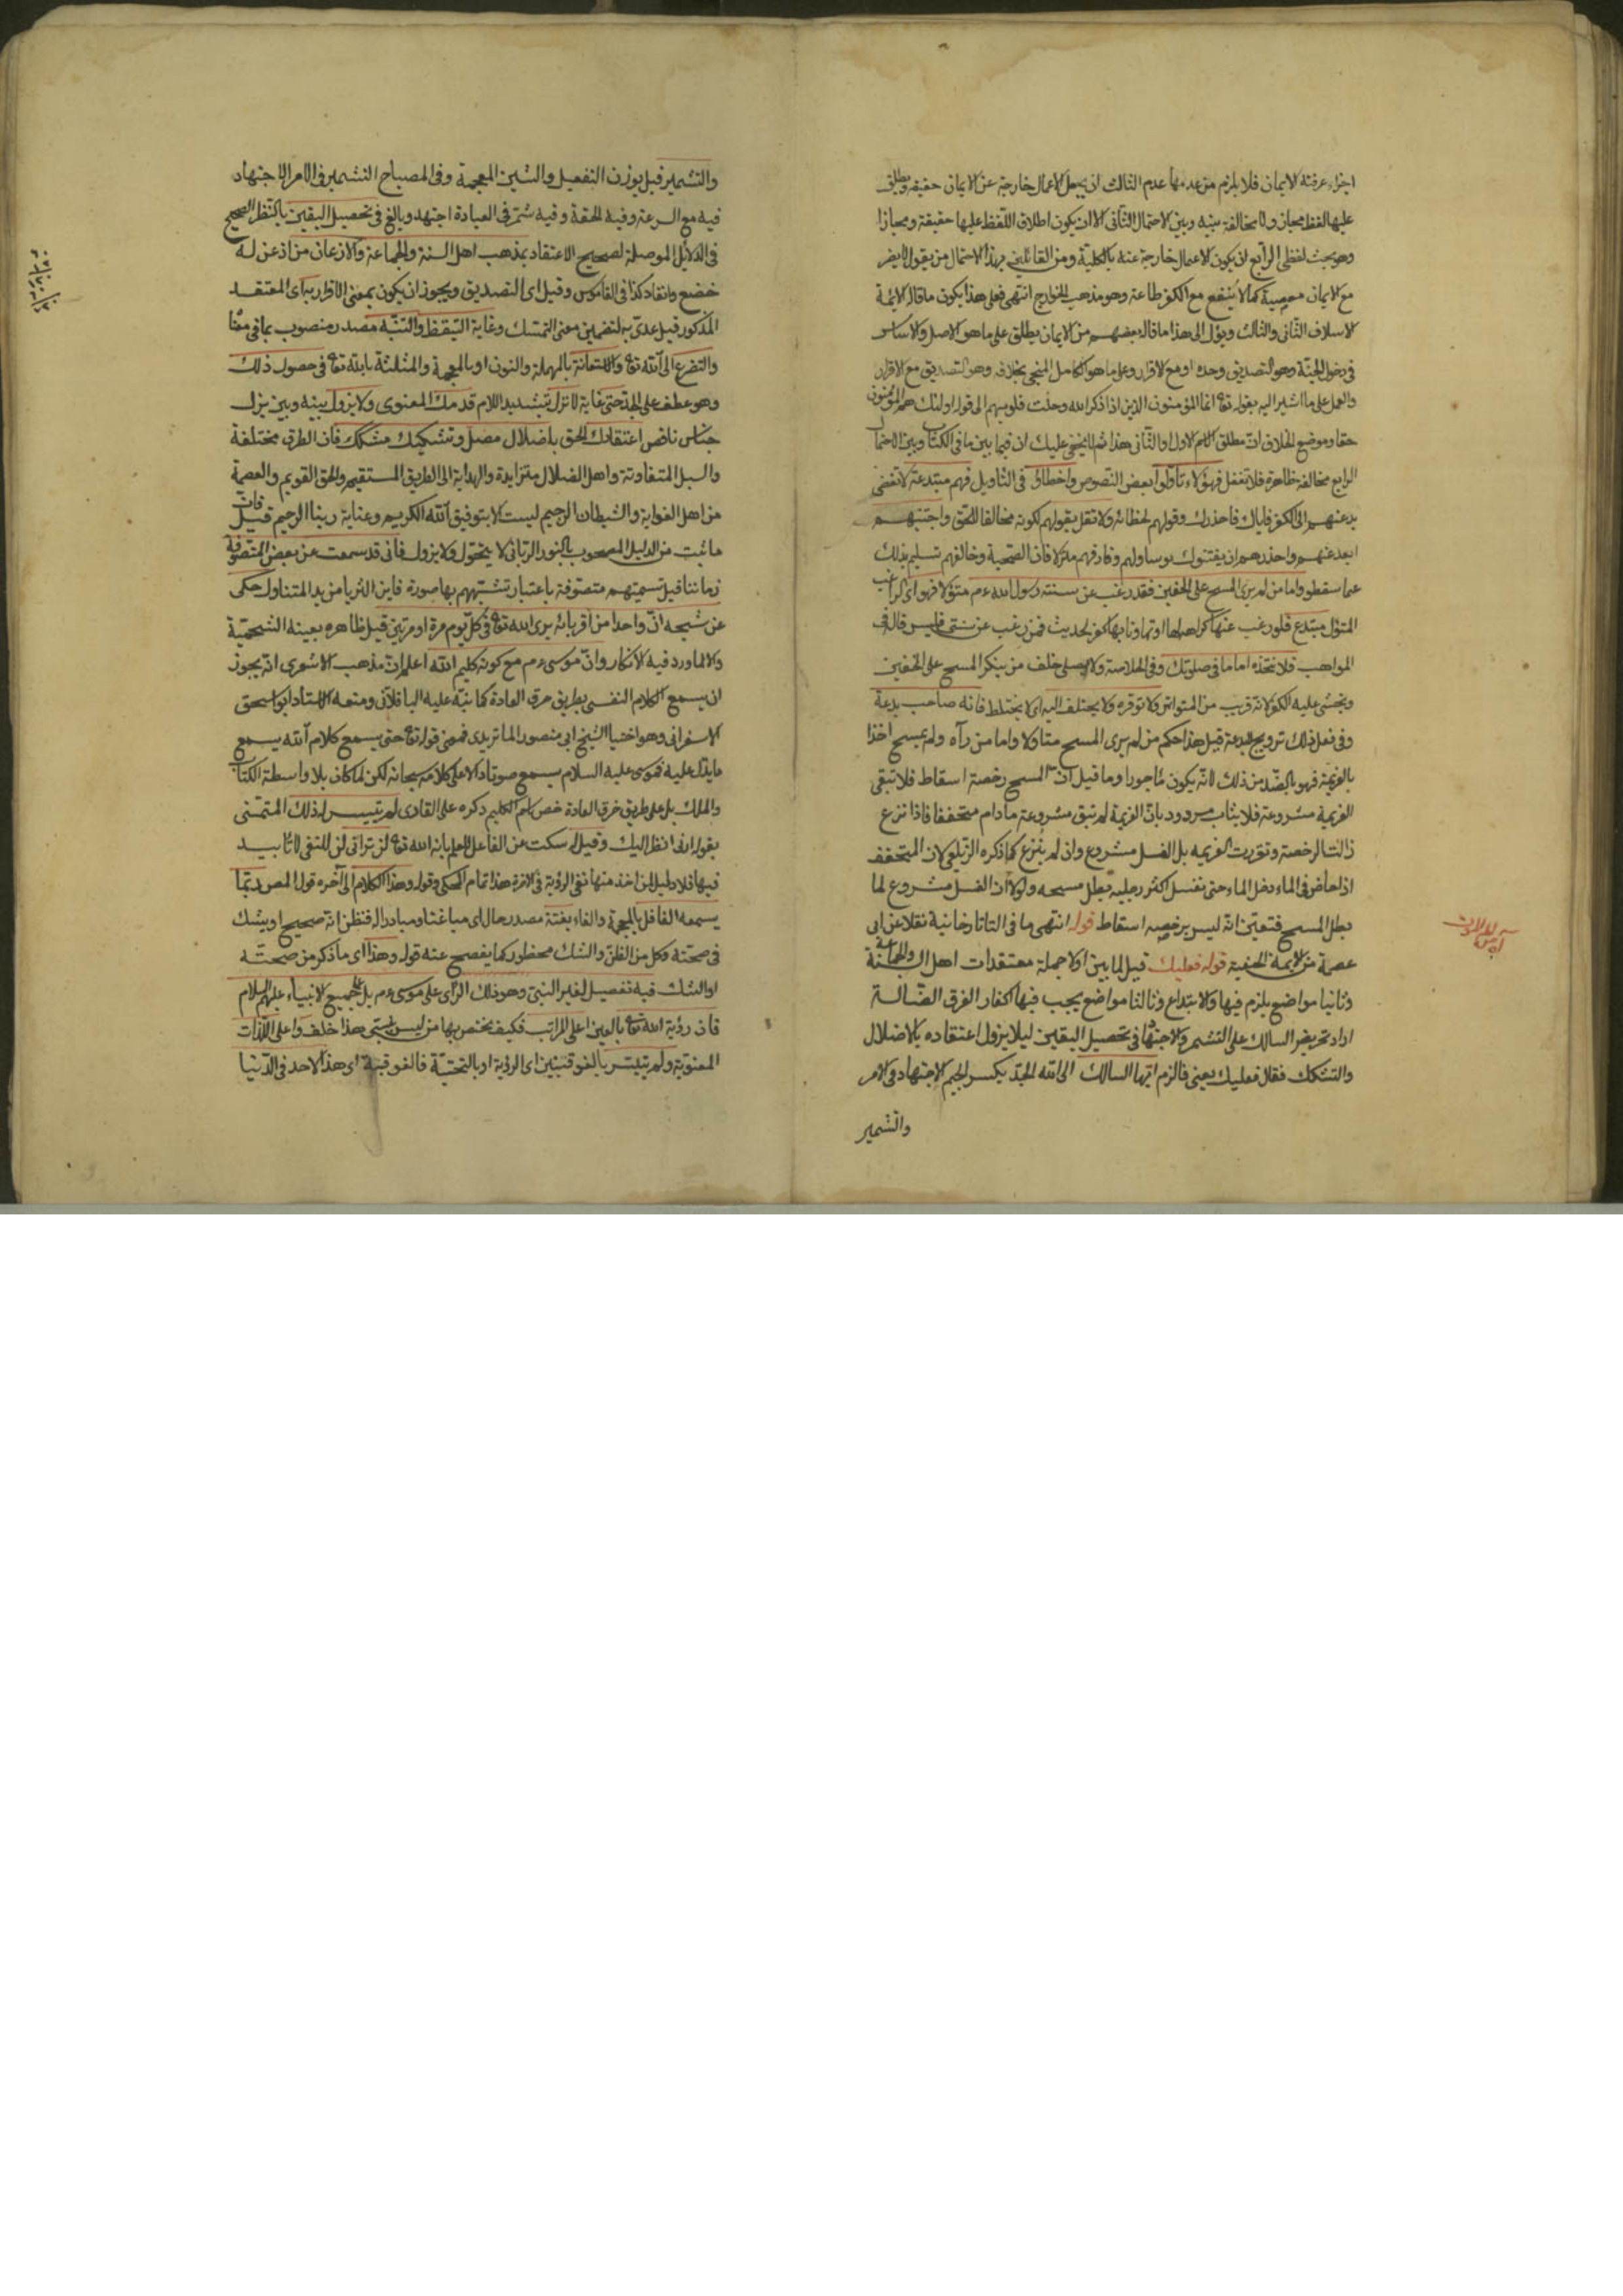 اجزاء عرفية للايمان فلا يلزم من عدمها عدم الثالث ان يجعل الاعمال خارجة عن الايمان حقيقة ويطلق
عليها لفظ مجاز ولا مخالفة بينه وبين الاحتمال الثانى الا ان يكون اطلاق اللفظ عليها حقيقة ومجازا
وهو بحث لفظى الرابع ان يكون الاعمال خارجة عنه بالكلية ومن القائلين بهذا الاحتمال من يقول لا يضر
مع الايمان معصية كما لا ينفع مع الكفر طاعة وهو مذهب الخوارج انتهى فعلى هذا يكون ما قال الائمة
الاسلاف الثانى والثالث ويؤل الى هذا ما قاله بعضهم من الايمان يطلق على ما هو الاصل والاساس
فى دخول الجنة وهو التصديق وحده او مع الاقرار وعلى ما هو الكامل المنجى بخلاف وهو التصديق مع الاقرار
والعمل على ما اشير اليه بقوله تعا انما المؤمنون الذين اذا ذكر الله وجلت قلوبهم الى قوله اولئك هم المؤمنون
حقا وموضع الخلاف ان مطلق الاسم الاول او الثانى هذا ثم لا يخفى عليك ان فيما بين ما فى الكتاب وبين الاحتمال
الرابع مخالفة ظاهرة فلا تغفل فهؤلاء تأولوا بعض النصوص واخطاؤا فى التاويل فهم مبتدعة لا تفضى
بدعتهم الى الكفر فاياك فاحذرك وقولهم لخطائه ولا تقل بقولهم لكونه مخالفا للحق واجتنبهم
ابعد عنهم واحذرهم ان يفتنوك وفارقهم فان الصحبة وخالفهم تسليم بذلك
عما سقطوا واما من لم يرى المسح على الخفين فقد رغب عن سنته رسول الله ءم متؤلا فهو اى الراغب
المتؤل مبتدع فلو رغب عنها كراهة لها او تهاونا بها كفر لحديث فمن رغب عن سنتى فليس منى قاله فى
المواهب فلا تتخذه اماما فى صلوتك وفى الخلاصة ولا يصلى خلف من ينكر المسح على الخفين
ويخشى عليه الكفر لانه قريب من المتواتر ولا توقره ولا يختلف اليه اى لا يختلط فانه صاحب بدعة
وفى فعل ذلك ترويج لبدعة قيل هذا حكم من لم يرى المسح متاولا واما من رآه ولم يمسح اخذا
بالعزيمة فهو بالضد من ذلك لانه يكون مأجورا وما قيل ان المسح رخصة اسقاط فلا تبقى
العزيمة مشروعة فلا يثاب مردود بان العزيمة لم تبق مشروعة ما دام متخففا فاذا نزع
زالت الرخصة وتقررت العزيمة بل الغسل مشروع وان لم ينزع كما ذكره الزيلعى لان المتخفف
اذا خاض فى الماء دخل الماء حتى تغسل اكثر رجليه بطل مسحه ولولا ان الغسل مشروع لما
بطل المسح فتعين انه ليس برخصة اسقاط قوله انتهى ما فى التاتارخانية نقلا عن ابى
عصمة من الائمة الحنفية قوله فعليك قيل لما بين اولا جملة معتقدات اهل السنة والجماعة
وثانيا مواضع يلزم فيها الابتداع وثالثا مواضع يجب فيها اكفار الفرق الضالة
اراد تحريض السالك على التشمر والاجتهاد فى تحصيل اليقين ليلا يزول اعتقاده بالاضلال
والتشكك فقال فعليك يعنى فالزم ايها السالك الى الله الجد بكسر الجيم الاجتهاد فى الامر
والتشمير
والتشمير قيل بوزن التفعيل والشين المعجمة وفى المصباح التشمير فى الامر الاجتهاد
فيه مع السرعة وفيه الحقة وفيه شمر فى العبادة اجتهد وبالغ فى تحصيل اليقين بالنظر الصحيح
فى الدلائل الموصلة لصحيح الاعتقاد بمذهب اهل السنة والجماعة والاذعان من اذعن له
خضع وانقاد كذا فى القاموس وقيل اى التصديق ويجوز ان يكون بمعنى الاقرار به اى المعتقد
المذكور قيل عدى به لتضمين معنى التمسك وغاية التيقظ والتنبه مصدر منصوب بما فى معنا
والتضرع الى الله تعا والاستعانة بالمهملة والنون او بالمعجمة والمثلثة بالله تعا فى حصول ذلك
وهو عطف على الجد حتى غاية لا تزل بتشديد اللام قدمك المعنوى ولا يزول بينه وبين يزل
جناس ناقص اعتقادك الحق باضلال مضل وتشكيك مشكك فان الطرق مختلفة
والسبل المتفاوتة واهل الضلال متزايدة والهداية الى الطريق المستقيم والحق القويم والعصمة
من اهل الغواية والشيطان الرجيم ليست الا بتوفيق الله الكريم وعناية ربنا الرحيم قيل فان
ما ثبت من الدليل المصحوب بالنور الربانى لا يتحول ولا يزول فانى قد سمعت عن بعض المتصوفة
زماننا قيل تسميتهم متصوفة باعتبار تشبههم بها صورة فاين الثريا من يد المتناول حكى
عن شيخه ان واحدا من اقربائه يرى الله تعا فى كل يوم مرة او مرتين قيل ظاهره بعينه الشحمية
والا لما ورد فيه الانكار وان موسى ءم مع كونه كليم الله اعلم ان مذهب الاشعرى انه يجوز
ان يسمع الكلام النفسى بطريق خرق العادة كما نبه عليه الباقلانى ومنعه الاستاد ابو اسحق
الاسفرانى وهو اختيار الشيخ ابى منصور الماتريدى فمعنى قوله تعا حتى يسمع كلام الله يسمع
ما يدل عليه فموسى عليه السلام يسمع صوتا دالا على كلامه سبحانه لكن لما كان بلا واسطة الكتاب
والملك بل على طريق خرق العادة خص باسم الكليم ذكره على القارى لم يتيسر له ذلك المتمنى
بقوله ارنى انظر اليك وقيل له سكت عن الفاعل للعلم بانه الله تعا لن ترانى لن للنفى لا تابيد
فيها فلا دليل لمن اخذ منها نفى الرؤية فى الاخرة هذا تمام المحكى وقوله وهذا الكلام الى آخره قول المص ربما
يسمعه الغافل بالمعجمة والفاء بغتة مصدر حال اى مباغتا ومبادرا له فيظن انه صحيح او يشك
فى صحته وكل من الظن والشك محظور كما يفصح عنه قوله وهذا اى ما ذكر من صحته
او الشك فيه تفضيل لغير النبى وهو ذلك الرآى على موسى ءم بل على جميع الانبياء عليهم السلام
فان رؤية الله تعا بالعين اعلى المراتب فكيف يختص بها من ليس بنبى هذا خلف واعلى اللذات
المعنوية ولم يتيسر بالفوقيتين اى الرؤية او بالتحتية فالفوقية اى هذا لاحد فى الدنيا